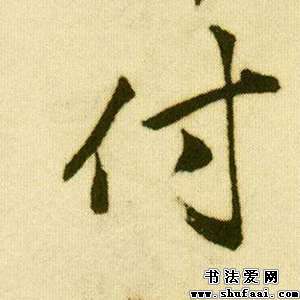 付
书法爱网
www.shufaai.com